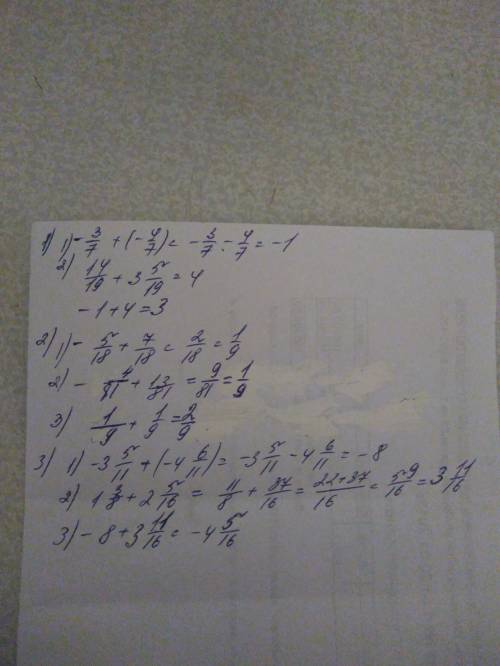 1) 1) -3/7 + (-4/7) = -3/7 - 4/7 = -1
2) 14/19 + 3 5/19 = 4
-1+4=3
2) 1) -5/18 + 7/18 = 2/18 = 1/9
2) -4/81 + 13/81 = 9/81 = 1/9
3) 1/9 + 1/9 = 2/9
3) 1) -3 5/11 + (-4 6/11) = -3 5/11 - 4 6/11 = -8
2) 1 3/8 + 2 5/16 = 11/8 + 37/16 = 22+37/16 = 59/16 = 3 11/16
3) -8 + 3 11/16 = -4 5/16